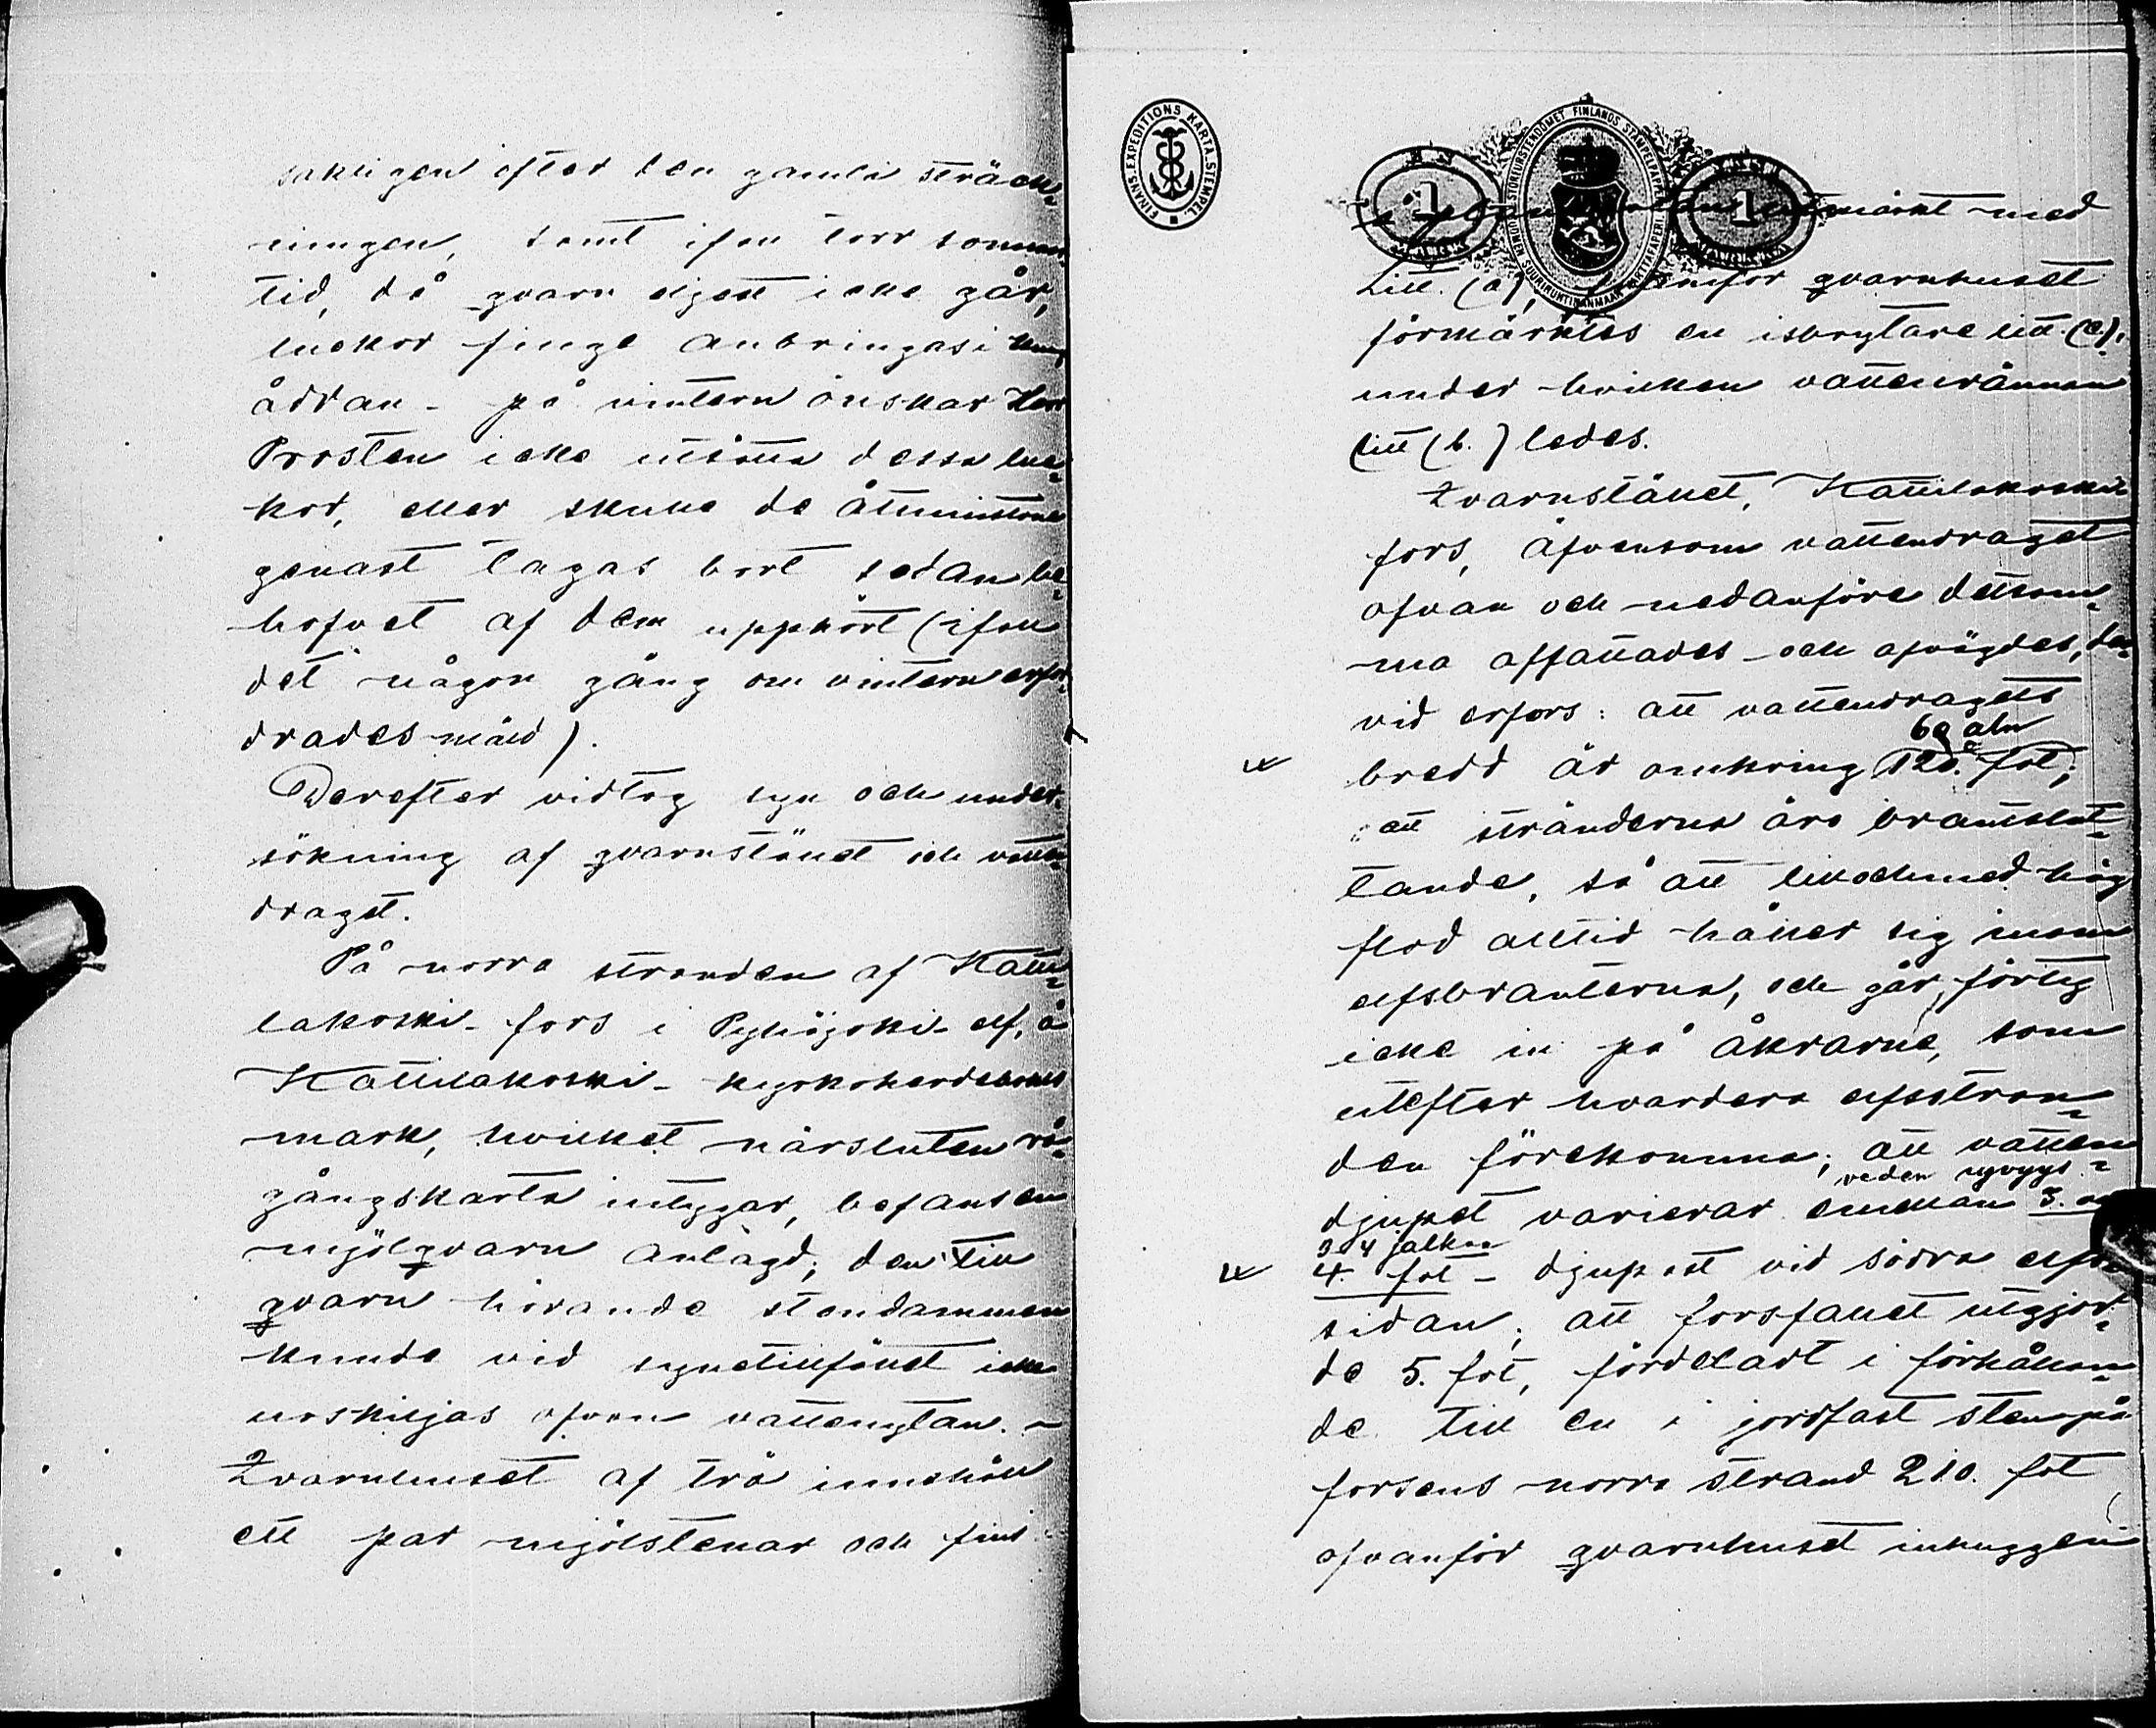 sakligen efter den gamla sträck-
ningen, samt ifall torr sommar-
tid, då qvarn eljest icke går,
luckor finge anbringas i kungs-
ådran – på vintern önskar Herr
Prosten icke utsätta dessa luc-
kor, eller skulle de åtminstone
genast tagas bort sedan be-
hofvet af dem upphört (ifall
det någon gång om vintern erfor-
drades mäld).
Derefter vidtog syn och under-
sökning af qvarnstället och vatten-
draget.
På norra stranden af Katti-
lakoski-fors i Pyhäjoki-elf, å
Kattilakoski-
mark, hvilket närsluten rå-
gångskarta utiggar, befans en
mjölqvarn anlagd; den till
qvarn hörande stendammen
kunde vid synetillfället icke
urskiljas ofvan vattenytan. –
Qvarnhuset af trä innehöll
ett par mjölstenar och fins
FINANS. EXPEDITIONS KARTA. STEMPEL.
STORFURSTENDÖMET FINLANDS STÄMPELPAPPER
SUOMEN SUURIRUHTINANMAAN KARTTAPAPERI
1
1
utmärkt med
Litt. (a), ofvanför qvarnhuset
förmärktes en isbrytare litt. (c).
under hvilken vattenrännan
(litt (b.) ledes.
Qvarnstället, Kattilakoski-
fors, äfvensom vattendraget
ofvan och nedanföre detsam-
ma affattades och afvägdes, der-
vid erfors: att vattendragets
60 aln
bredd är omkring 120. fot;
att stränderna äro brantslut-
tande, så att till och med hög
flod alltid håller sig inom
elfsbranterna, och går förtig
icke in på åkrarne, som
utefter hvardera elfsstran-
den förekomma; att vatten-
veden syvyys
djupet varierar emellan 3. och
3 4 jalkaa
4. fot – djupast vid södra elfs-
sidan; att forsfallet utgjor-
de 5. fot, fördeladt i förhållan-
de till en i jordfast sten på
forsens norra strand 210. fot
ofvanför qvarnhuset inhuggen